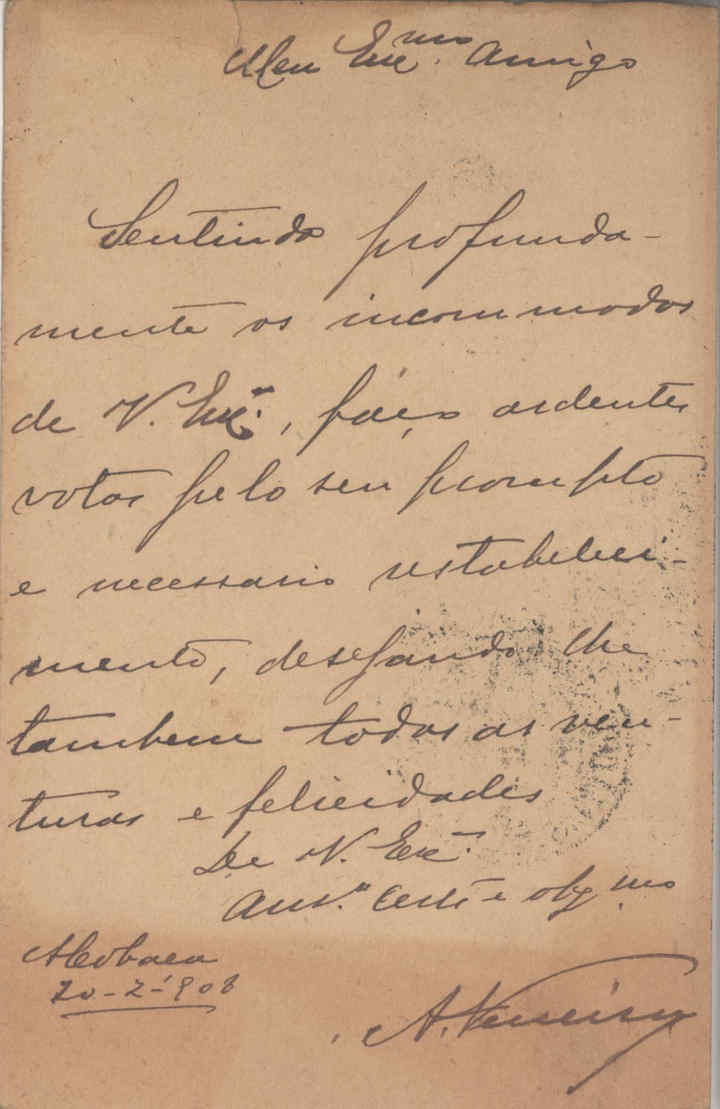 Meu Exc.mo Amigo
Sentindo profunda-
mente os incommodos
de V. Exc.ª, faço ardentes
votos pelo seu prompto
e necessario restabeleci-
mento, desejando-lhe
tambem todas as ven-
turas e felicidades
De V. Exc.ª
e obg.mo
Alcobaça
20-2-908
A.